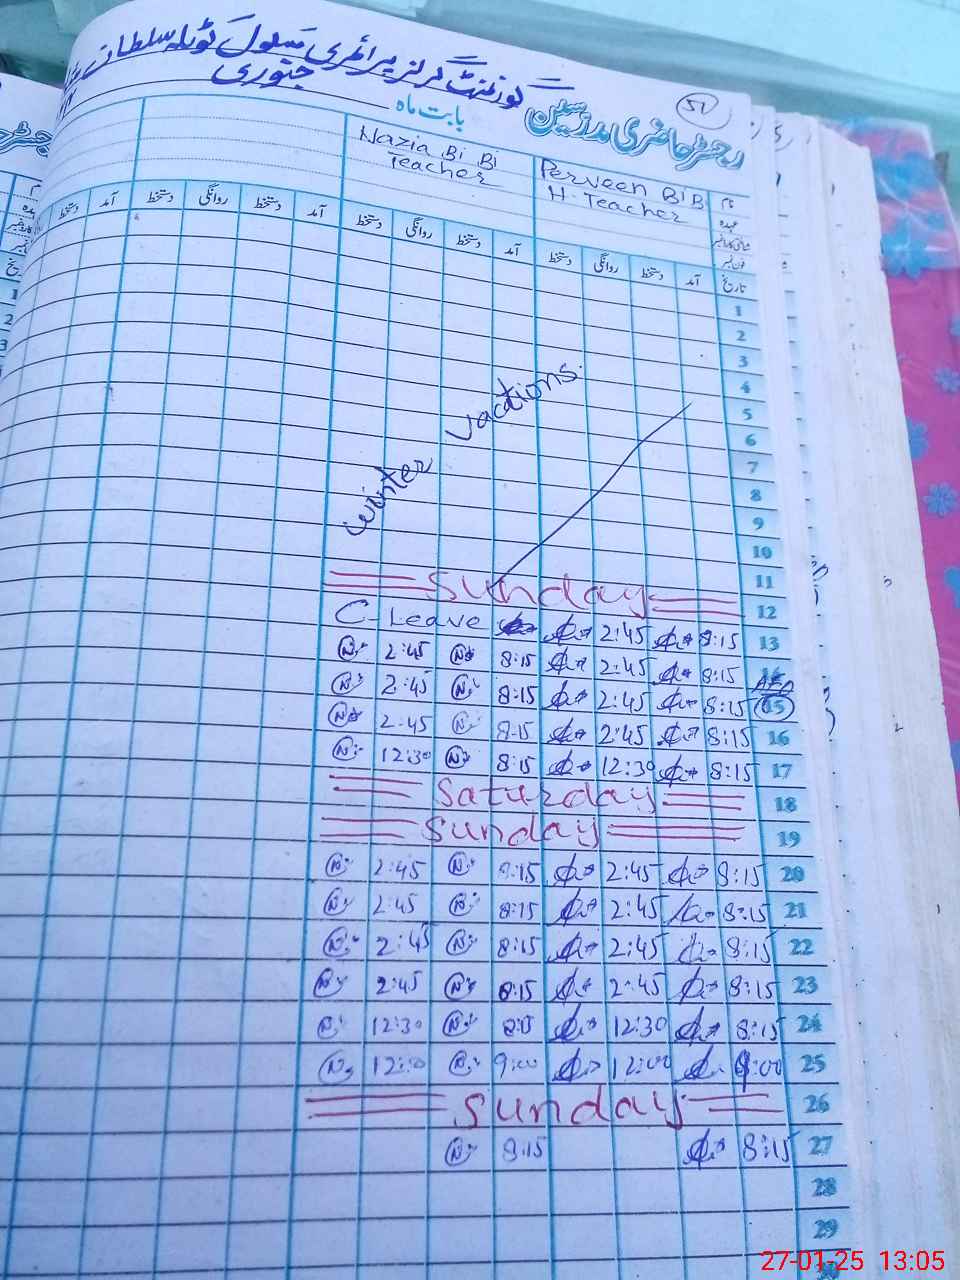 گورنمنٹ گرلز پرائمری سکول ٹوبہ سلطانی
51
رجسٹر حاضری مدرسین
بابت ماہ جنوری
نام Perveen BiB Nazia Bi Bi
عہدہ H. Teacher Teacher
شناختی کارڈ نمبر
فون نمبر
تاریخ آمد دستخط روانگی دستخط آمد دستخط روانگی دستخط آمد دستخط روانگی دستخط آمد دستخط
1
2
3
4
5
6
7
8
9
10
winter vactions.
11
Sunday 12
C-Leave 2:45 8:15 13
2:45 8:15 2:45 8:15 14
AEO
2:45 8:15 2:45 8:15 15
2:45 8:15 2:45 8:15 16
12:30 8:15 12:30 8:15 17
Saturday 18
Sunday 19
2:45 8:15 2:45 8:15 20
2:45 8:15 2:45 8:15 21
2:45 8:15 2:45 8:15 22
2:45 8:15 2:45 8:15 23
12:30 8:15 12:30 8:15 24
12:00 9:00 12:00 9:00 25
Sunday 26
8:15 8:15 27
28
29
27-01-25 13:05